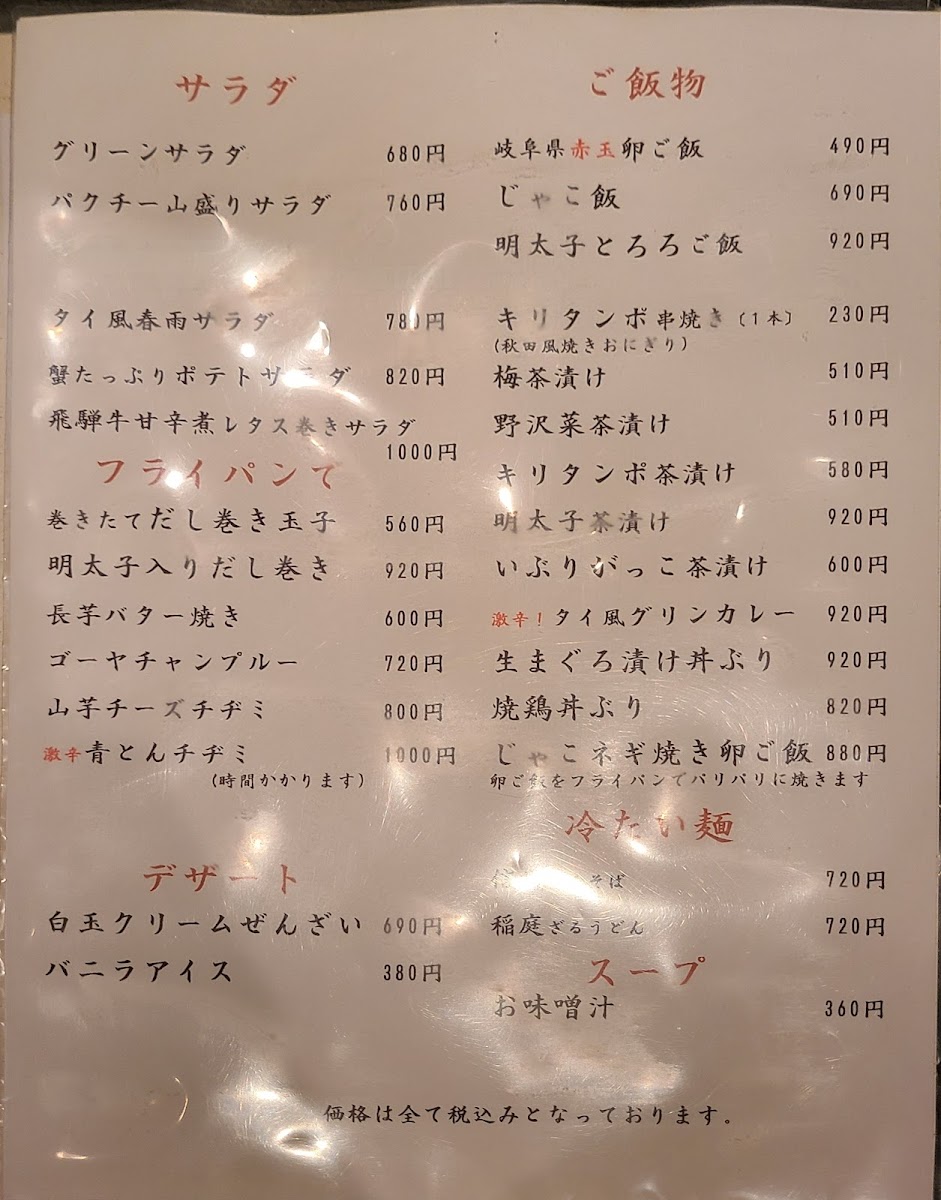 サラダ
グリーンサラダ 680円
パクチー山盛りサラダ 760円
タイ風春雨サラダ 780円
蟹たっぷりポテトサラダ 820円
飛騨牛甘辛煮レタス巻きサラダ
1000円
フライパンで
巻きたてだし巻き玉子 560円
明太子入りだし巻き 920円
長芋バター焼き 600円
ゴーヤチャンプルー 720円
山芋チーズチヂミ 800円
激辛青とんチヂミ 1000円
(時間かかります)
デザート
白玉クリームぜんざい 690円
バニラアイス 380円
ご飯物
岐阜県赤玉卵ご飯 490円
じゃこ飯 690円
明太子とろろご飯 920円
キリタンポ串焼き(1本) 230円
(秋田風焼きおにぎり)
梅茶漬け 510円
野沢菜茶漬け 510円
キリタンポ茶漬け 580円
明太子茶漬け 920円
いぶりがっこ茶漬け 600円
激辛!タイ風グリンカレー 920円
生まぐろ漬け丼ぶり 920円
焼鶏丼ぶり 820円
じゃこネギ焼き卵ご飯 880円
卵ご飯をフライパンでパリパリに焼きます
冷たい麺
そば 720円
稲庭ざるうどん 720円
スープ
お味噌汁 360円
価格は全て税込みとなっております。